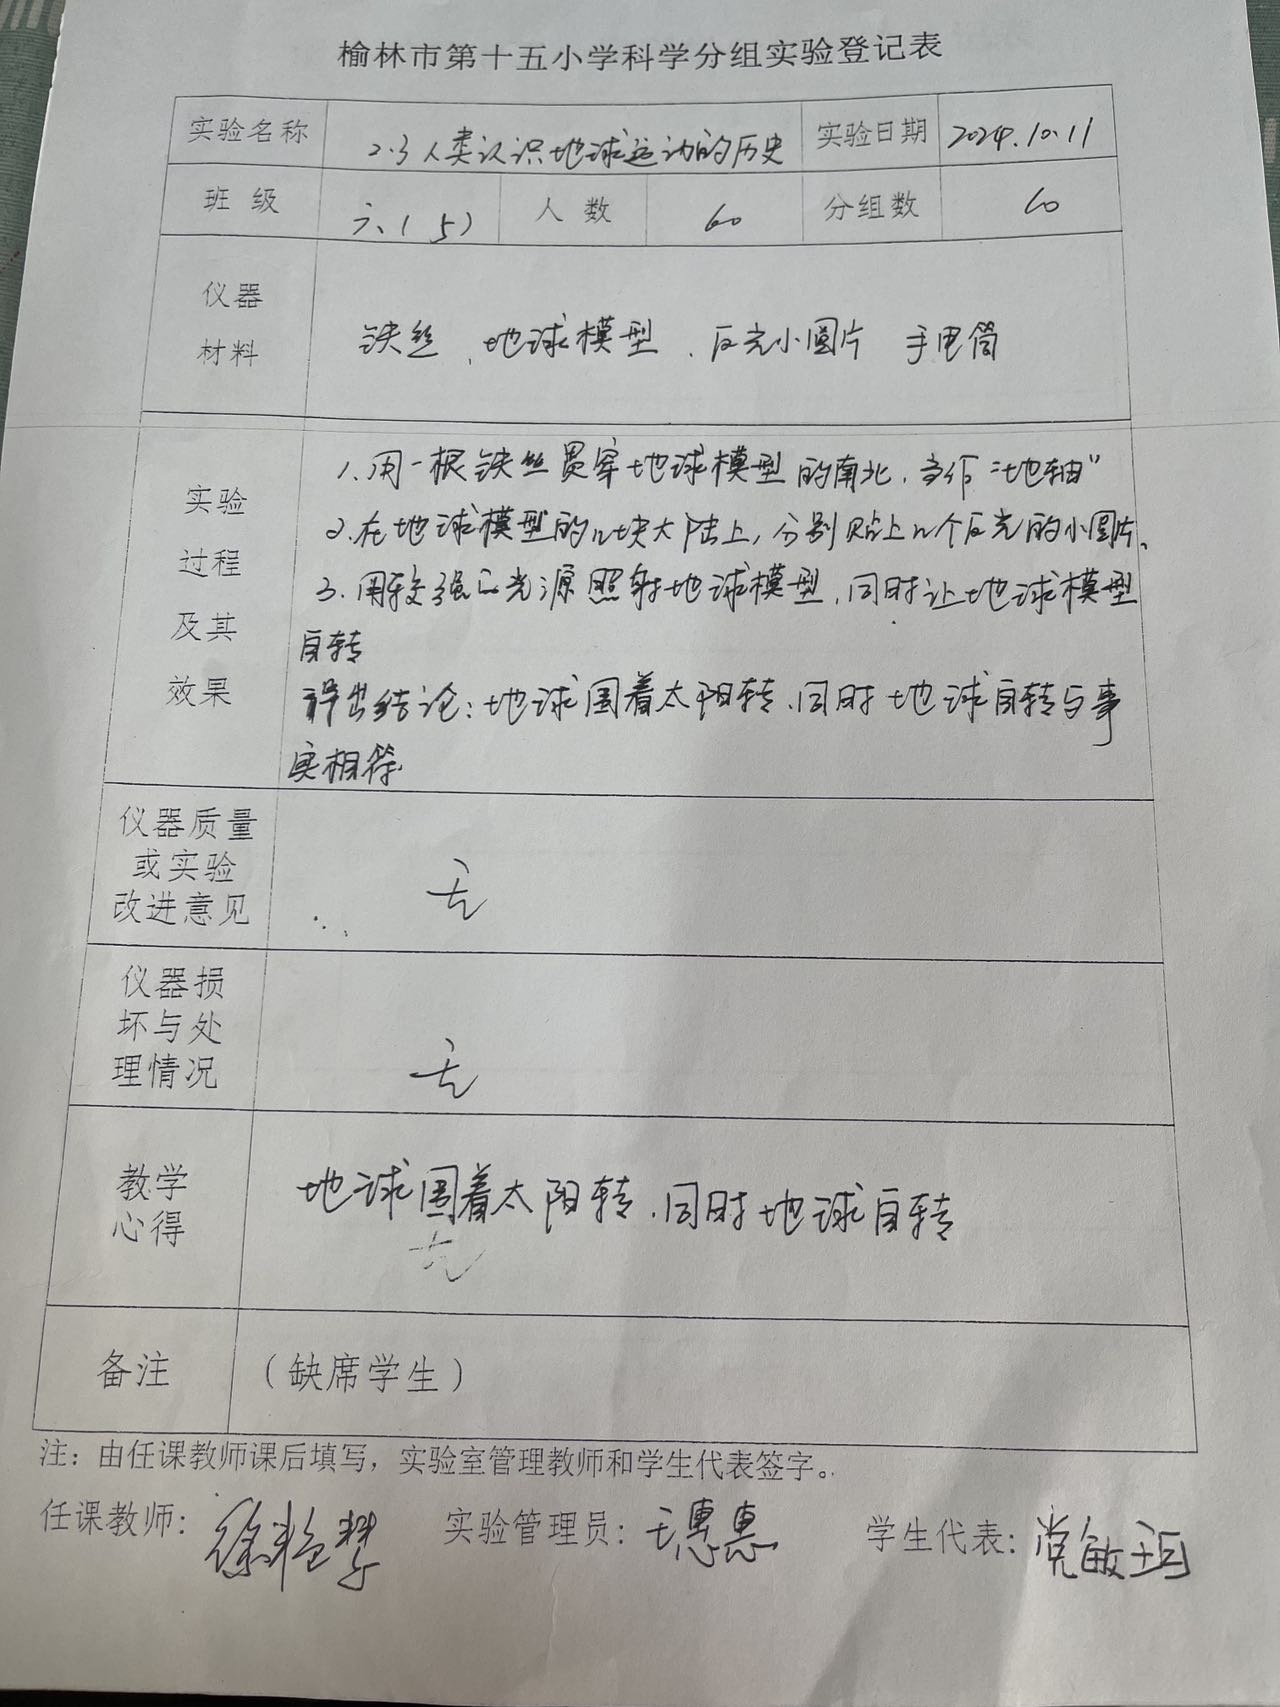 榆林市第十五小学科学分组实验登记表
实验名称 2.3人类认识地球运动的历史 实验日期 2024.10.11
班级 六(5) 人数 60 分组数
仪器
材料
铁丝、地球模型、反光小圆片 手电筒
实验
过程
及其
效果
1.用一根铁丝贯穿地球模型的南北,当作“地轴”
2.在地球模型的几块大陆上,分别贴上几个反光的小圆片、
3.用较强的光源照射地球模型,同时让地球模型
自转
得出结论:地球围着太阳转、同时地球自转与事
实相符
仪器质量
或实验
改进意见
无
仪器损
坏与处
理情况
无
教学
心得
地球围着太阳转、同时地球自转
无
备注 (缺席学生)
注:由任课教师课后填写,实验室管理教师和学生代表签字。
任课教师: 实验管理员:王惠惠 学生代表:党敏珂